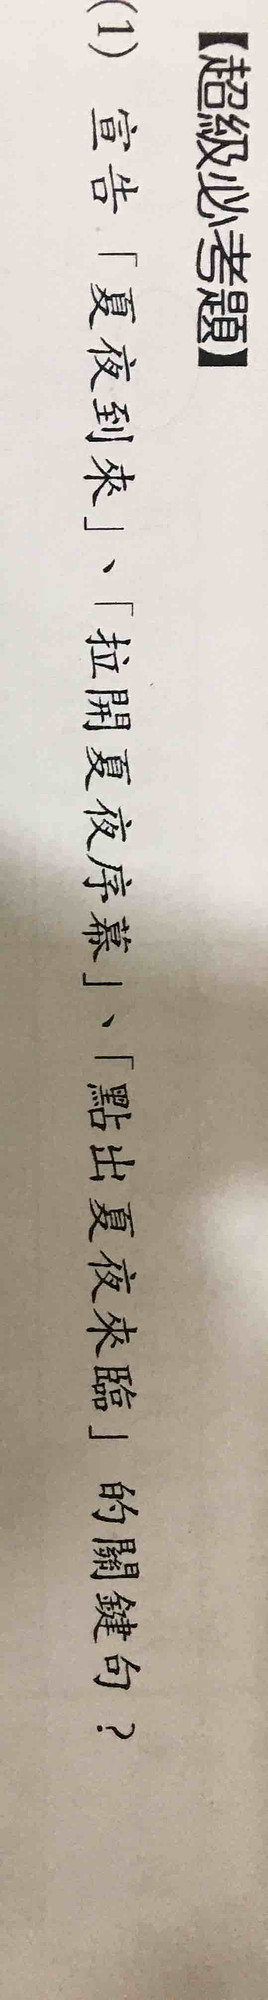 【超級必考題】
(1) 宣告「夏夜到來」、「拉開夏夜序幕」、「點出夏夜來臨」的關鍵句？